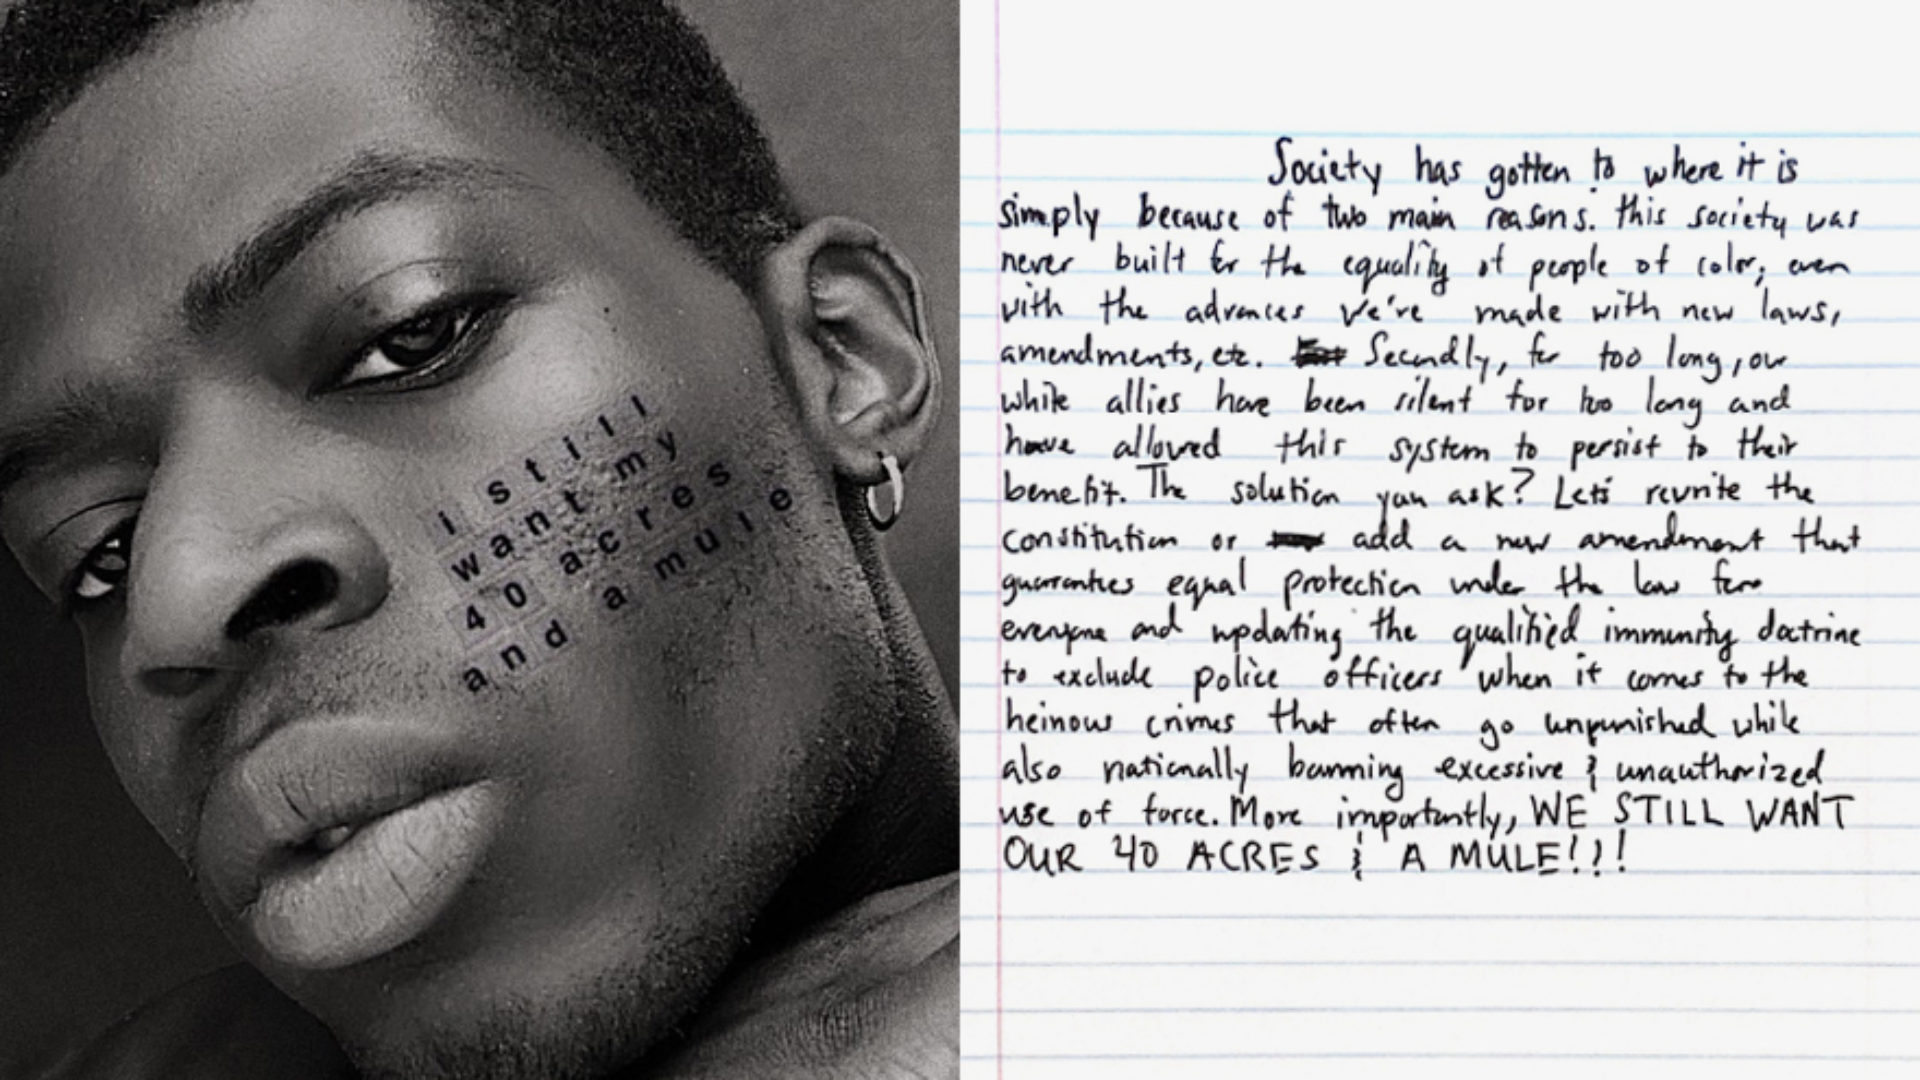 i still
want my
40 acres
and a mule
Society has gotten to where it is
simply because of two main reasons. this society was
never built for the equality of people of color, even
with the advances we've made with new laws,
amendments, etc. Secondly, for too long, our
while allies have been silent for too long and
have allowed this system to persist to their
benefit. The solution you ask? Lets rewrite the
constitution or add a new amendment that
guarantees equal protection under the law for
everyone and updating the qualified immunity doctrine
to exclude police officers when it comes to the
heinous crimes that often go unpunished while
also nationally banning excessive & unauthorized
use of force. More importantly, WE STILL WANT
OUR 40 ACRES & A MULE!!!